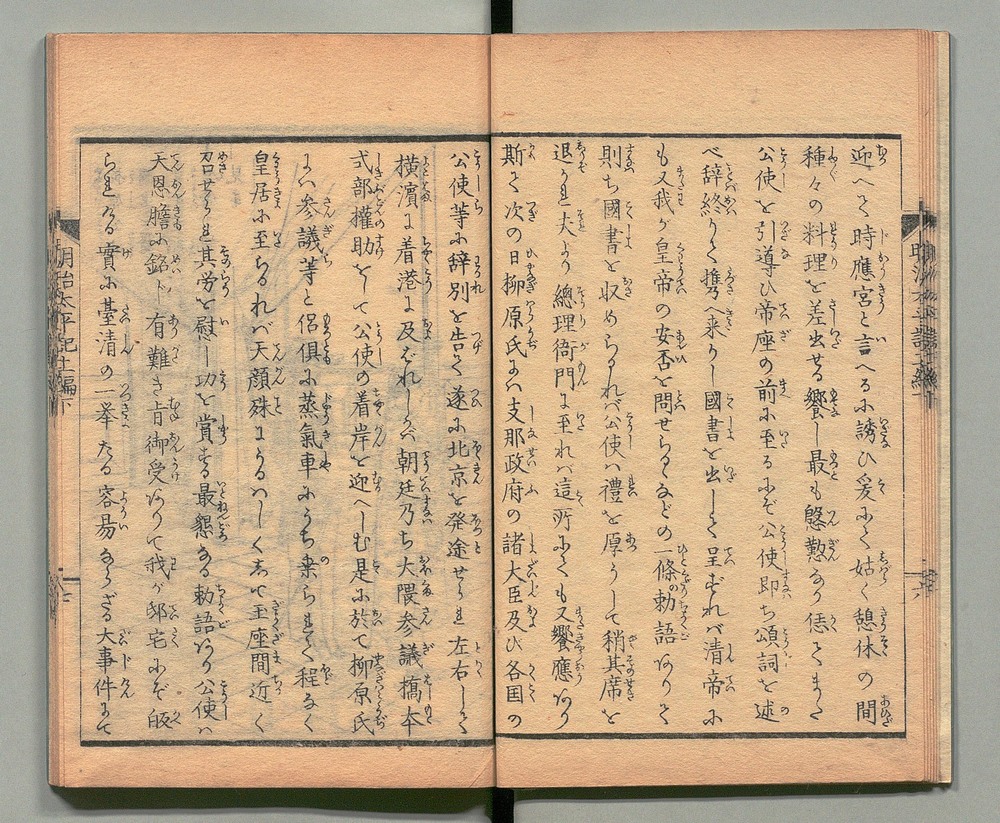 迎へて時應宮と言へるに誘ひ爰にて姑く憩休の間
種々の料理を差出せる饗し最も慇懃なり偖てまた
公使を引導ひ帝座の前に至るにぞ公使即ち頌詞を述
べ辞終りて携へ来りし國書を出して呈ずれバ清帝に
も又我が皇帝の安否を問せらるなどの一條の勅語ありて
則ち國書を収めらるれバ公使ハ禮を厚うして稍其席を
退かれ夫より總理衙門に至れバ這所にても又饗應あり
斯て次の日柳原氏にハ支那政府の諸大臣及び各国の
公使等に辞別を告て遂に北京を発途せられ左右して
横濱に着港に及ばれしかバ朝廷乃ち大隈参議橋本
式部權助をして公使の着岸を迎へしむ是に於て柳原氏
にハ参議等と侶俱に蒸氣車にうち乗られて程なく
皇居に至らるれバ天顔殊にうるハしくあいて玉座間近く
召せられ其労を慰し功を賞する最懇なる勅語あり公使ハ
天恩膽に銘ト有難き旨御受ありて我が邸宅にぞ皈
られける實に臺清の一挙たる容易ならざる大事件にて
明治太平記七編下